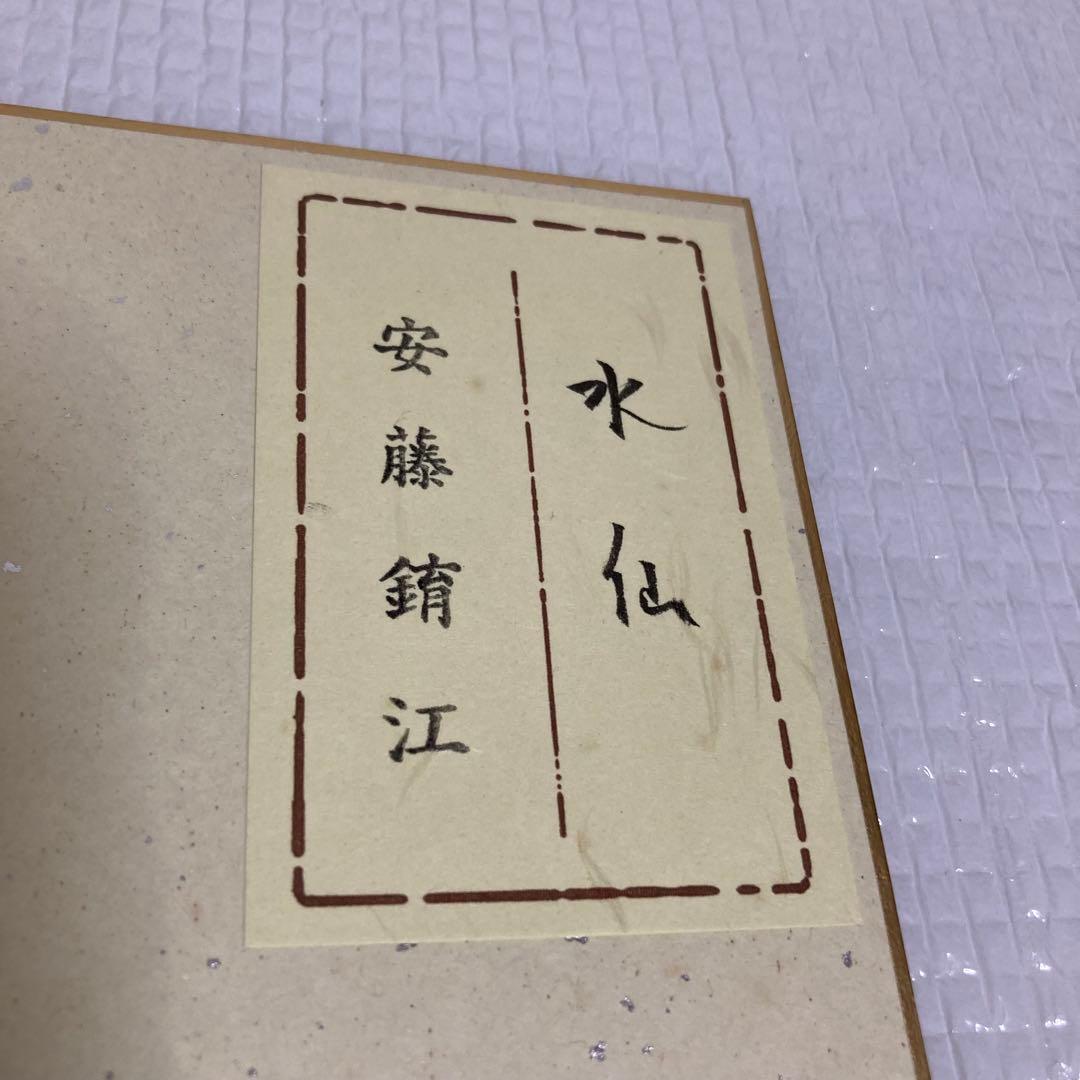 水仙
安藤錥江